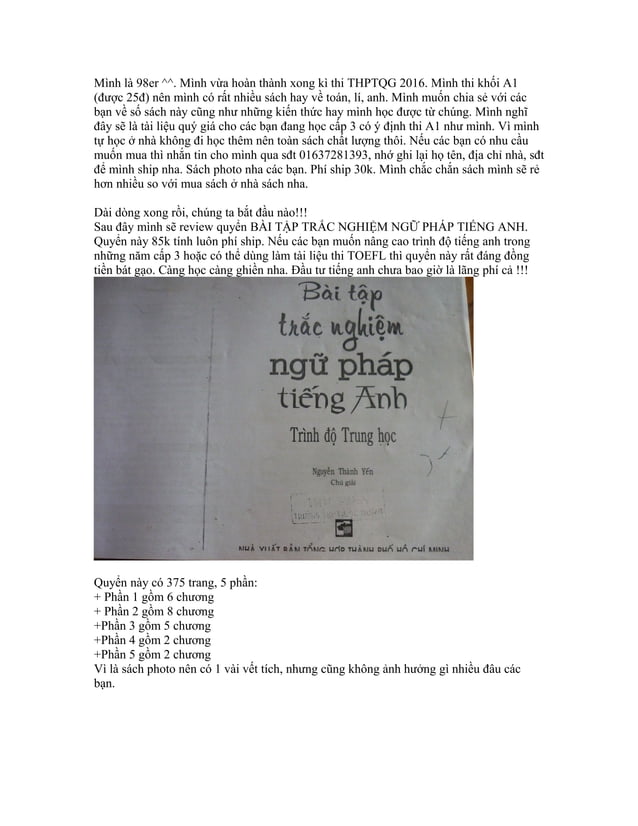 Mình là 98er ^^. Mình vừa hoàn thành xong kì thi THPTQG 2016. Mình thi khối A1
(được 25đ) nên mình có rất nhiều sách hay về toán, lí, anh. Mình muốn chia sẻ với các
bạn về số sách này cũng như những kiến thức hay mình học được từ chúng. Mình nghĩ
đây sẽ là tài liệu quý giá cho các bạn đang học cấp 3 có ý định thi A1 như mình. Vì mình
tự học ở nhà không đi học thêm nên toàn sách chất lượng thôi. Nếu các bạn có nhu cầu
muốn mua thì nhắn tin cho mình qua sđt 01637281393, nhớ ghi lại họ tên, địa chỉ nhà, sđt
để mình ship nha. Sách photo nha các bạn. Phí ship 30k. Mình chắc chắn sách mình sẽ rẻ
hơn nhiều so với mua sách ở nhà sách nha.
Dài dòng xong rồi, chúng ta bắt đầu nào!!!
Sau đây mình sẽ review quyển BÀI TẬP TRẮC NGHIỆM NGỮ PHÁP TIẾNG ANH.
Quyển này 85k tính luôn phí ship. Nếu các bạn muốn nâng cao trình độ tiếng anh trong
những năm cấp 3 hoặc có thể dùng làm tài liệu thi TOEFL thì quyển này rất đáng đồng
tiền bát gạo. Càng học càng ghiền nha. Đầu tư tiếng anh chưa bao giờ là lãng phí cả !!!
Bài tập
trắc nghiệm
ngữ pháp
tiếng Anh
Trình độ Trung học
Nguyễn Thành Yến
Chú giải
NHÀ XUẤT BẢN TỔNG HỢP THÀNH PHỐ HỒ CHÍ MINH
Quyển này có 375 trang, 5 phần:
+ Phần 1 gồm 6 chương
+ Phần 2 gồm 8 chương
+Phần 3 gồm 5 chương
+Phần 4 gồm 2 chương
+Phần 5 gồm 2 chương
Vì là sách photo nên có 1 vài vết tích, nhưng cũng không ảnh hưởng gì nhiều đâu các
bạn.